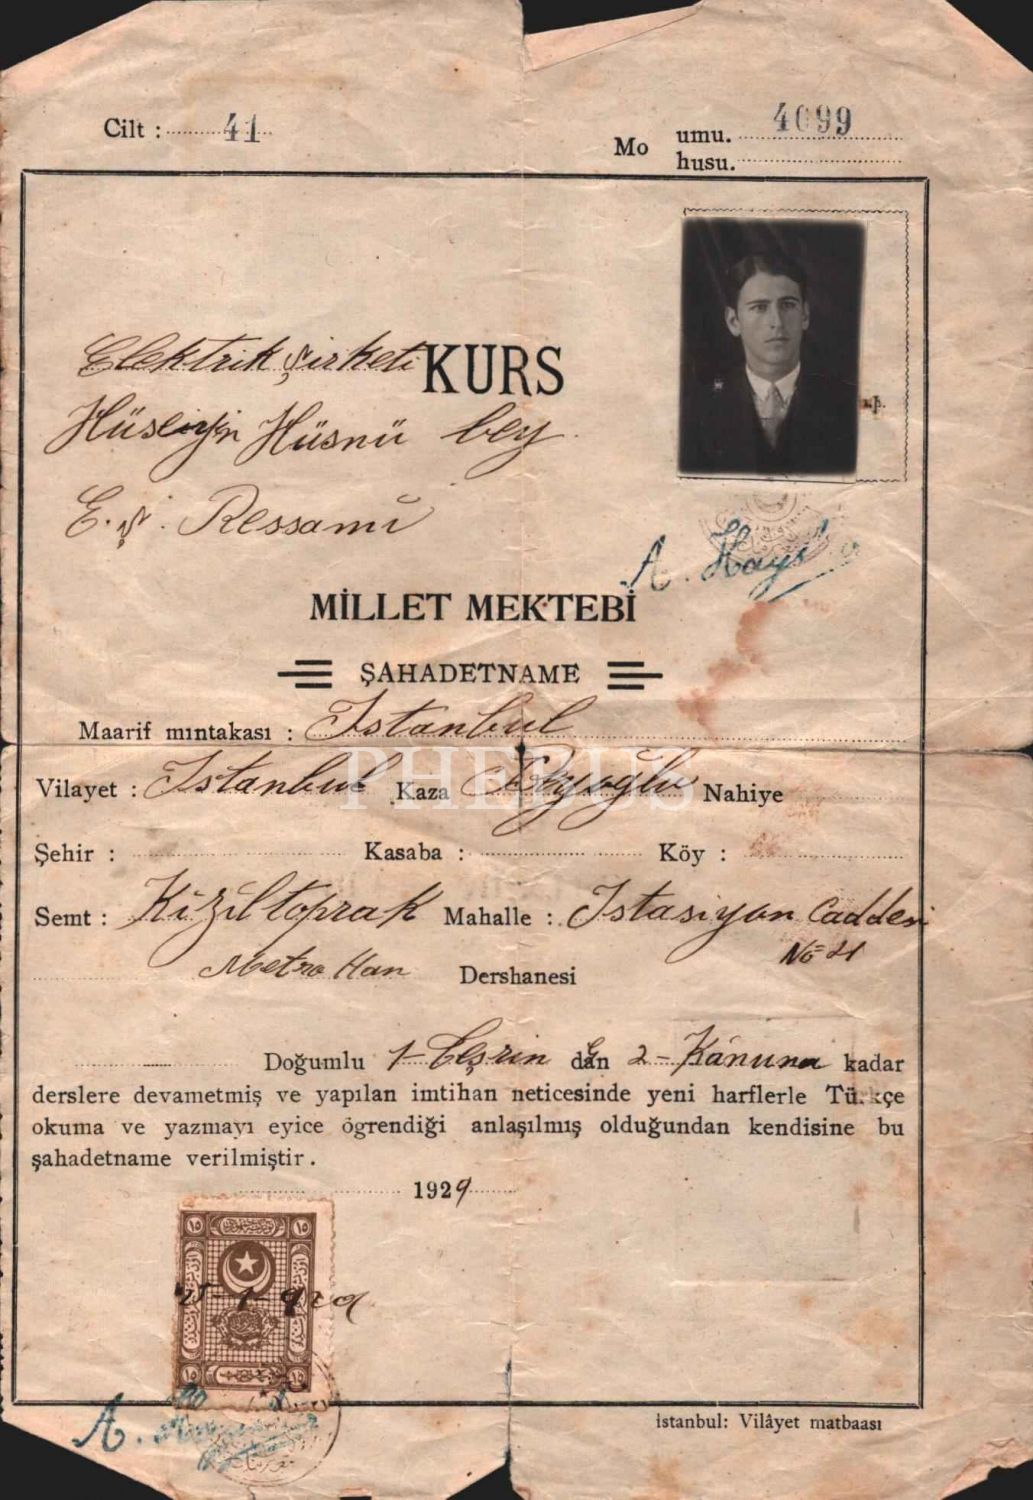 Cilt : 41
Mo umu. 4099
husu.
Elektrik şirketi KURS
Hüseiyin Hüsnü bey
E. Ş. Ressamı
A. Hays
MİLLET MEKTEBİ
ŞAHADETNAME
Maarif mıntakası : Istanbul
Vilayet : Istanbul Kaza Beyoğlu Nahiye
PHEBUS
Şehir : Kasaba : Köy :
Semt : Kiziltoprak Mahalle : Istasiyon Caddesi
No 21
Metro Han Dershanesi
Doğumlu 1- Teşrin dan 2- Kânuna kadar
derslere devametmiş ve yapılan imtihan neticesinde yeni harflerle Türkçe
okuma ve yazmayı eyice ögrendiği anlaşılmış olduğundan kendisine bu
şahadetname verilmiştir.
1929
١٥ ١٥
-1-929
١٥ ١٥
A.
istanbul: Vilâyet matbaası